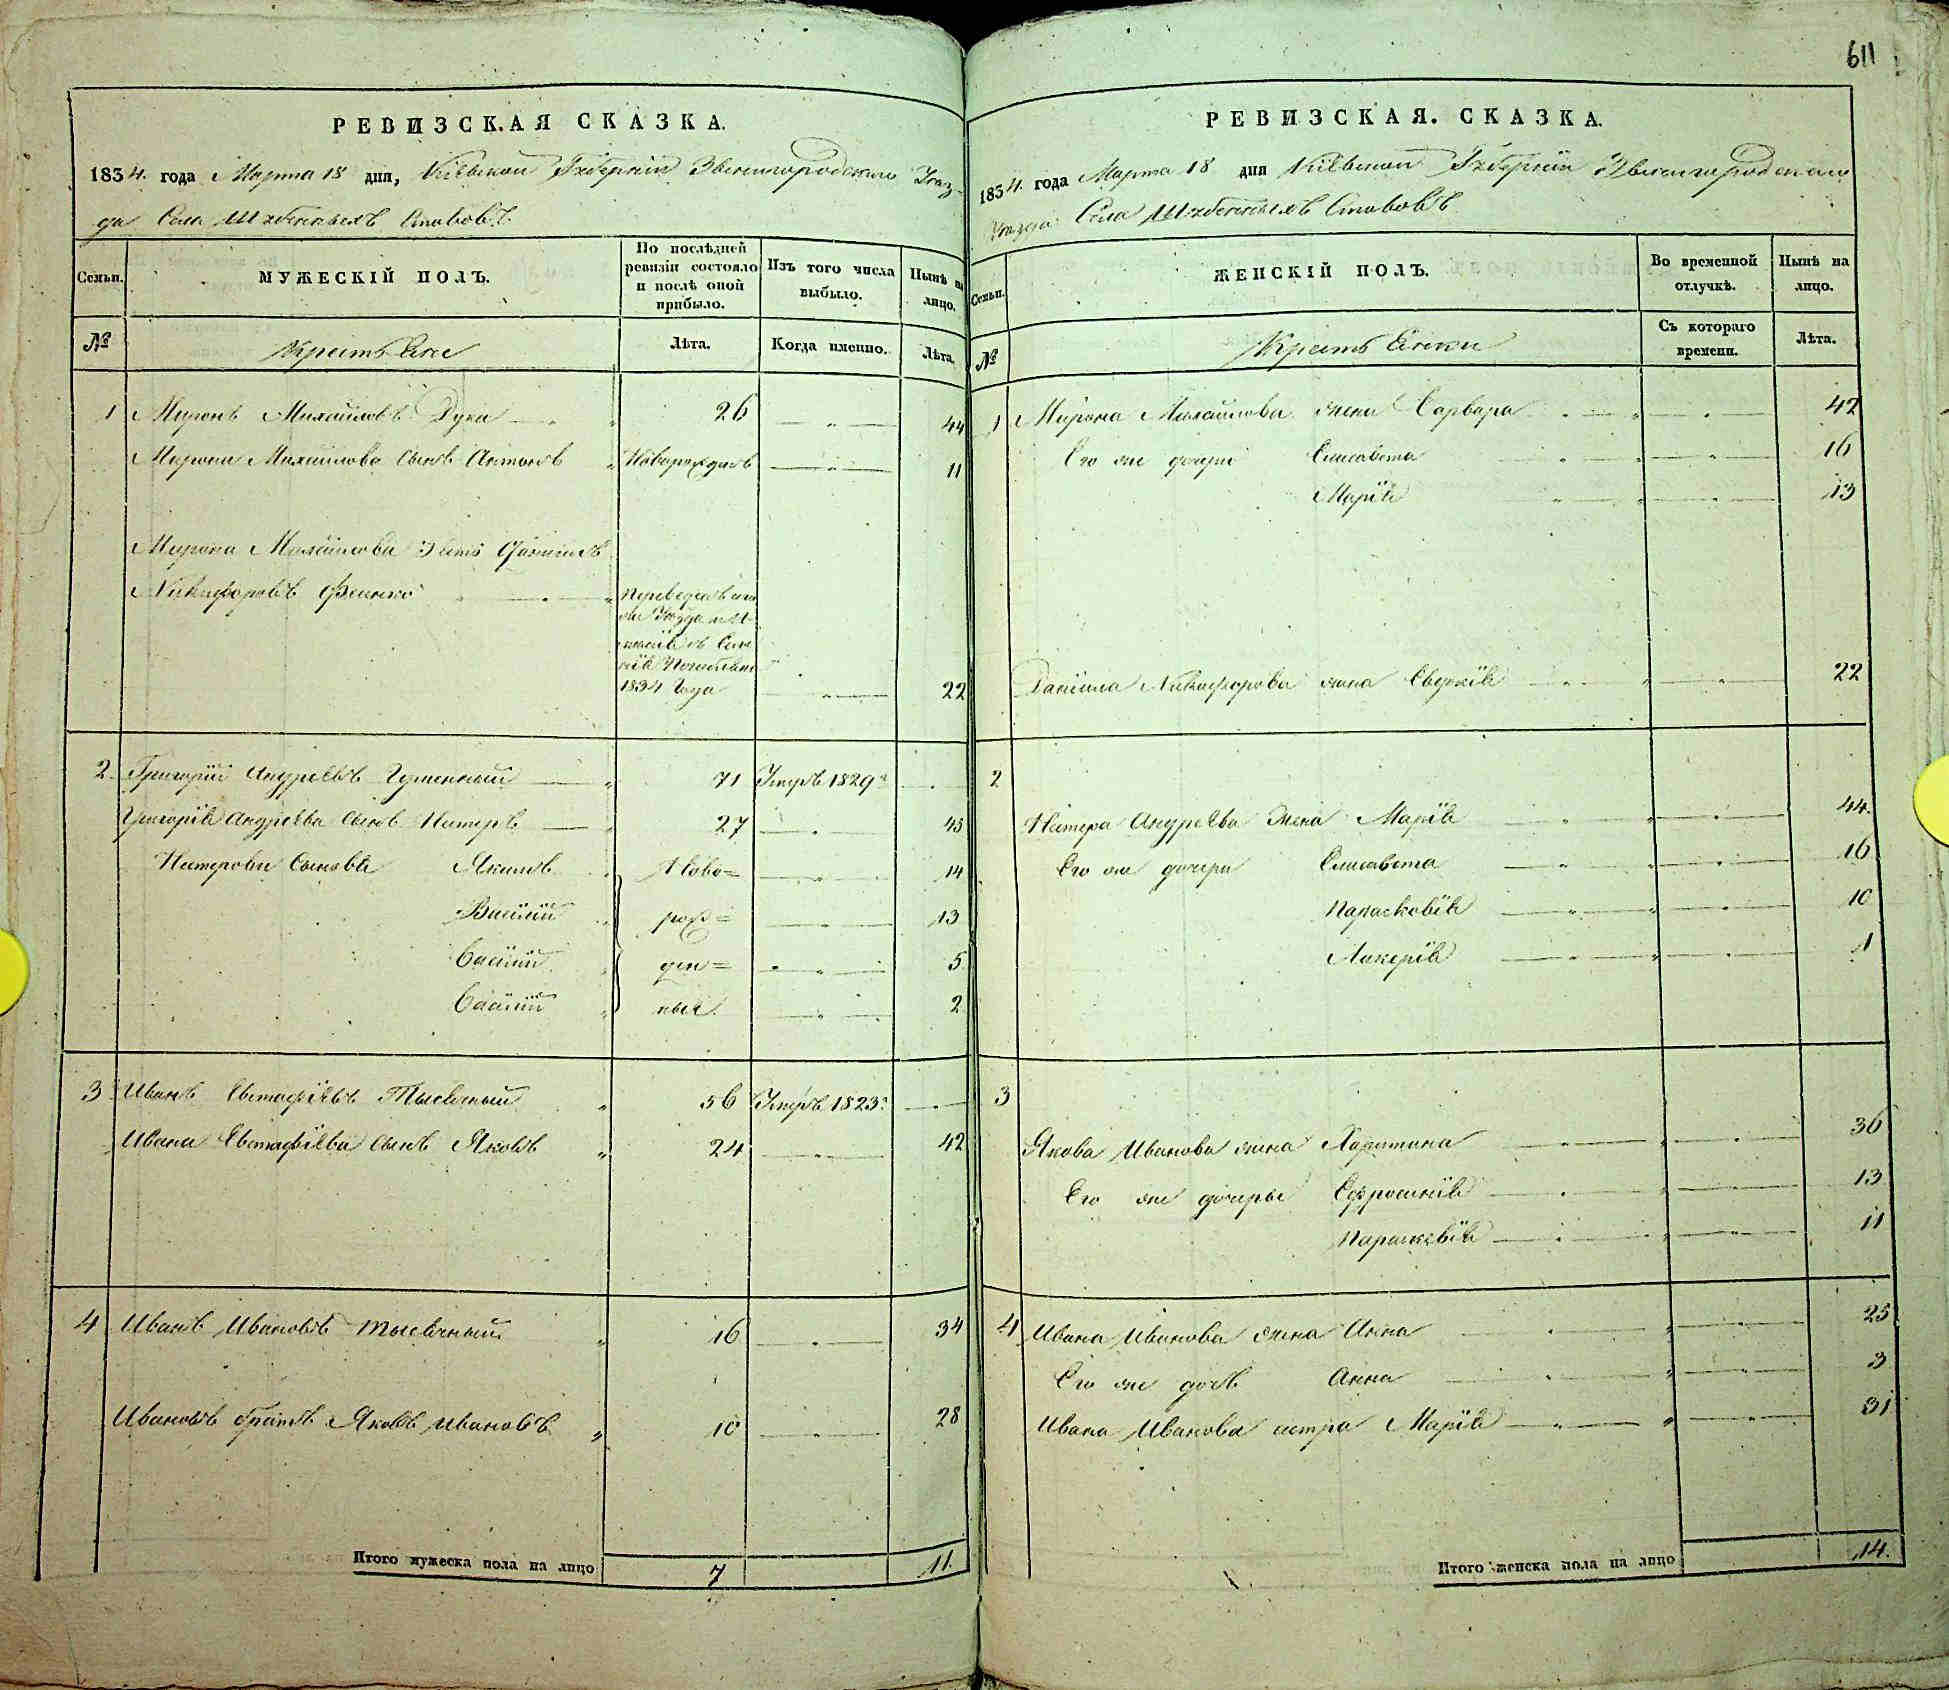 611
РЕВИЗСКАЯ СКАЗКА.
1834 года Марта 18 дня, Кіевской Губерніи Звенигородскаго Уез-
да Села Шубенныхъ Ставовъ
Семьи. МУЖЕСКІЙ ПОЛЪ. По послѣдней ревизіи состояло и послѣ оной прибыло. Изъ того числа выбыло. Нынѣ на лицо.
№ Крестьяне Лѣта. Когда именно. Лѣта.
1 Миронъ Михайловъ Дука 26 44
Мирона Михайлова сынъ Антонъ Новорожденъ 11
Мирона Михайлова зять Даніилъ
Никифоровъ
1834 года 22
2 Григорій Андреевъ 71 Умръ 1829
Григорія Андреева сынъ Нестеръ 27 45
Нестеровы сыновья Якимъ Ново= 14
Василій рож= 13
Василій ден= 5
Василій ные 2
3 Иванъ Евстафіевъ Тысячный 56 Умръ 1823
Ивана Евстафіева сынъ Яковъ 24 42
4 Иванъ Ивановъ Тысячный 16 34
Ивановъ братъ Яковъ Ивановъ 10 28
Итого мужеска пола на лицо 7 11.
РЕВИЗСКАЯ. СКАЗКА.
1834 года Марта 18 дня Кіевской Губерніи Звенигородскаго
Уезда Села Шубенныхъ Ставовъ
Семьи. ЖЕНСКІЙ ПОЛЪ. Во временной отлучкѣ. Нынѣ на лицо.
№ Крестьянки Съ котораго времени. Лѣта.
1 Мирона Михайлова жена Варвара 42
Его же дочери Елисавета 16
Марія 13
Даніила Никифорова жена Евдокія 22
2
Нестера Андреева жена Марія 44
Его же дочери Елисавета 16
Парасковія 10
Лукерія 1
3
Якова Иванова жена Харитина 36
Его же дочеры Ефросинія 13
Параскевія 11
4 Ивана Иванова жена Анна 25
Его же дочь Анна 3
Ивана Иванова сестра Марія 31
Итого женска пола на лицо 14.